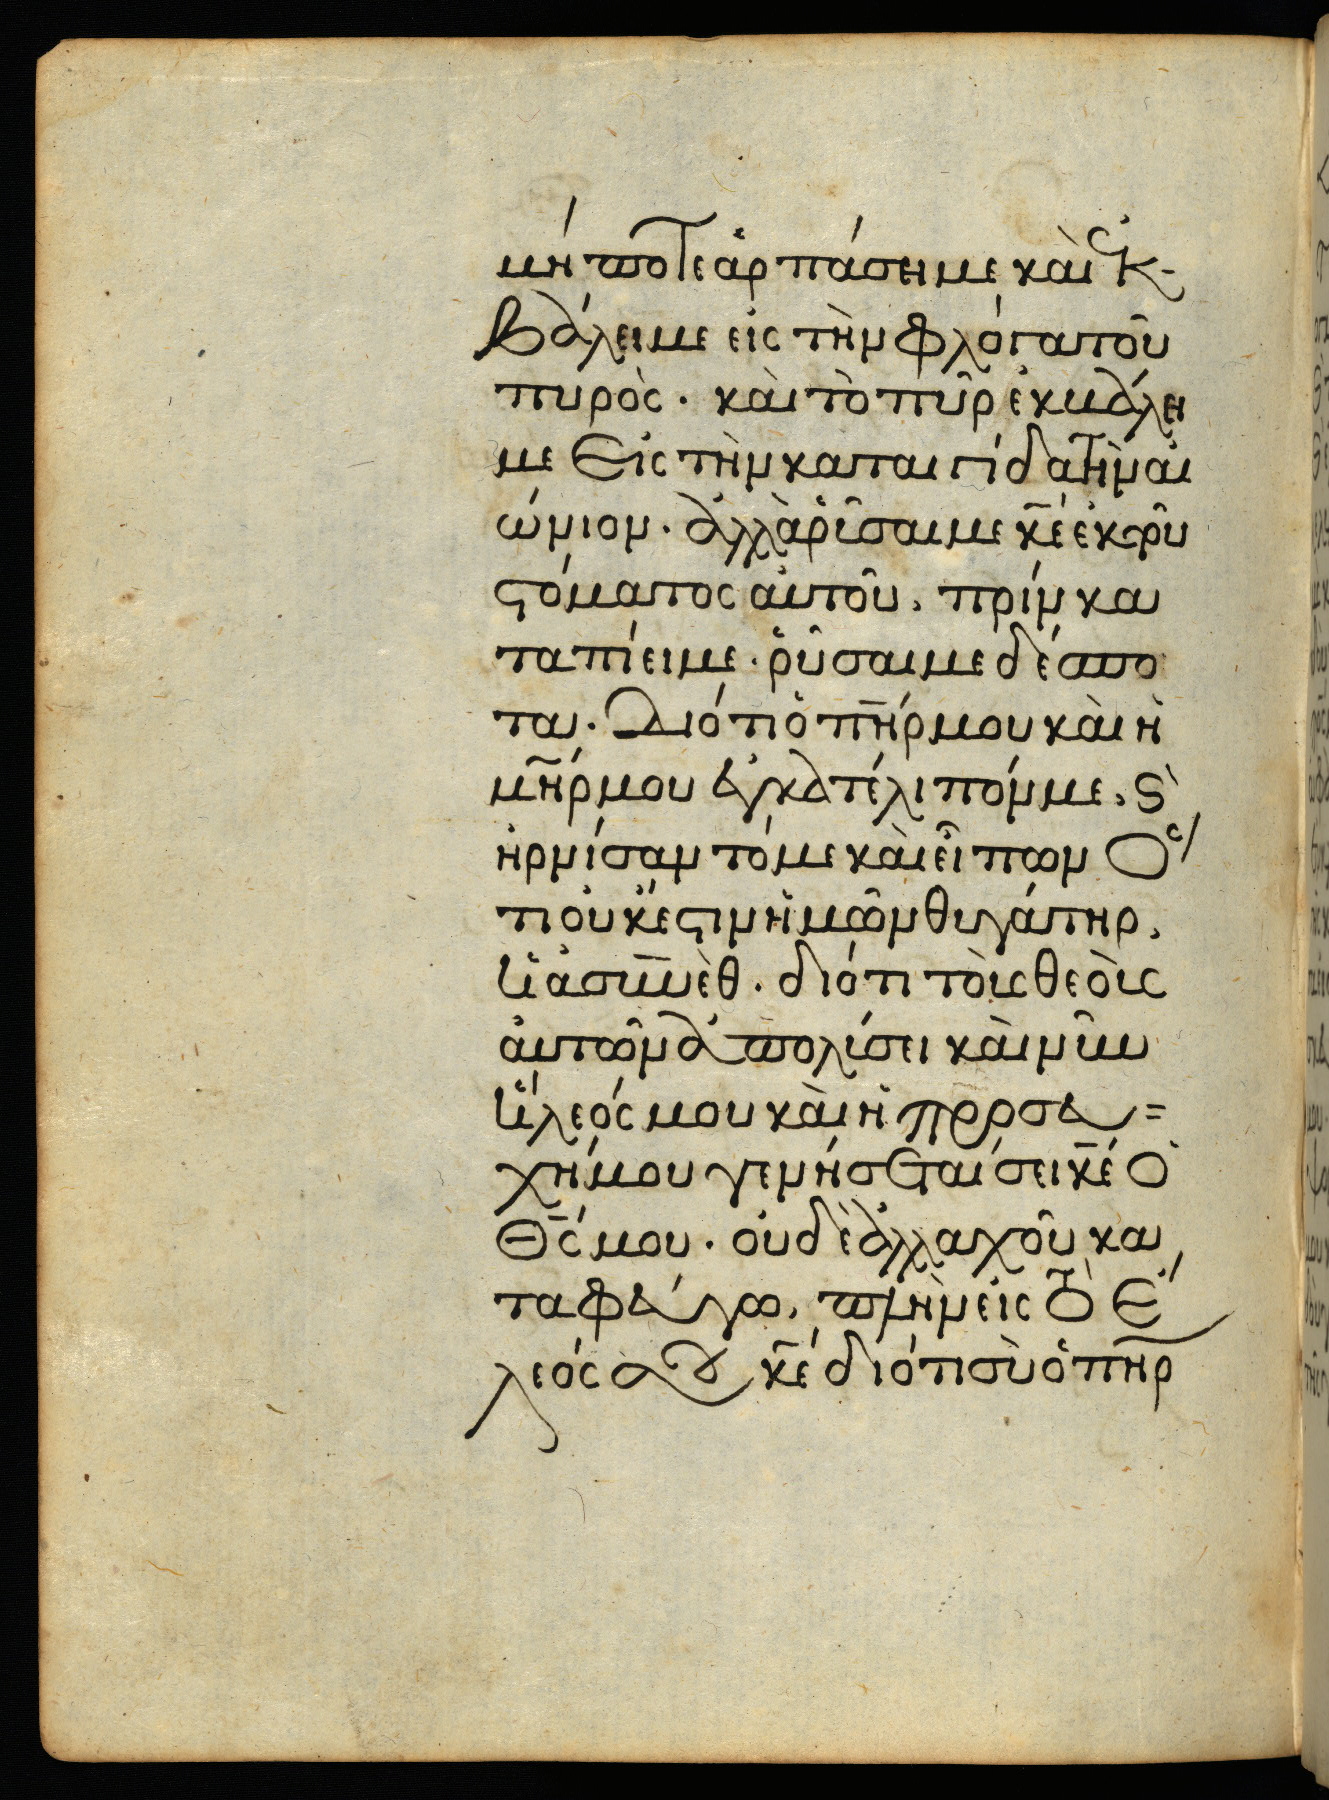 μήποτε ἁρπάσει με καὶ ἐκ-
βάλει με εἰς τὴν φλόγα τοῦ
πυρὸς. καὶ τὸ πῦρ ἐκβάλει
με εἰς τὴν καταιγίδα τὴν αἰ
ώνιον. ἀλλὰ ῥῖσαι με κ̅ε ἐκ τοῦ
στόματος αὐτοῦ, πρίν κα
ταπίει με. ῥῦσαι με δέσπο
τα. Διότι ὁ π̅ηρ μου καὶ ἡ
μ̅ηρ μου ἐγκατέλιπόν με, ϛ̀
ἠρνίσαντό με καὶ εἶπων Ὅ
τι οὐκ ἔστιν ἡμῶν θυγάτηρ,
ἡ ἀσυνὲθ. διότι τοὶς θεοὶς
αὐτῶν ἀπολίσει καὶ νῦν
ἡ ἔλεός μου καὶ ἡ προσευ=
χή μου γενήσεται σει κ̅ε Ὁ
Θ̅ς μου. οὐδὲ ἀλλαχοῦ κα
ταφεύγω, πλὴν εἰς τὸ ἔ
λεός σου κ̅ε διότι σὺ ὁ π̅ηρ